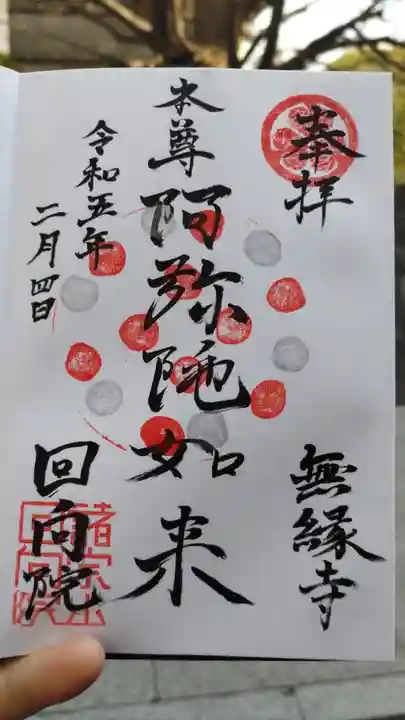 奉拝
無縁寺
本尊阿弥陀如来
令和五年
二月四日
回向院